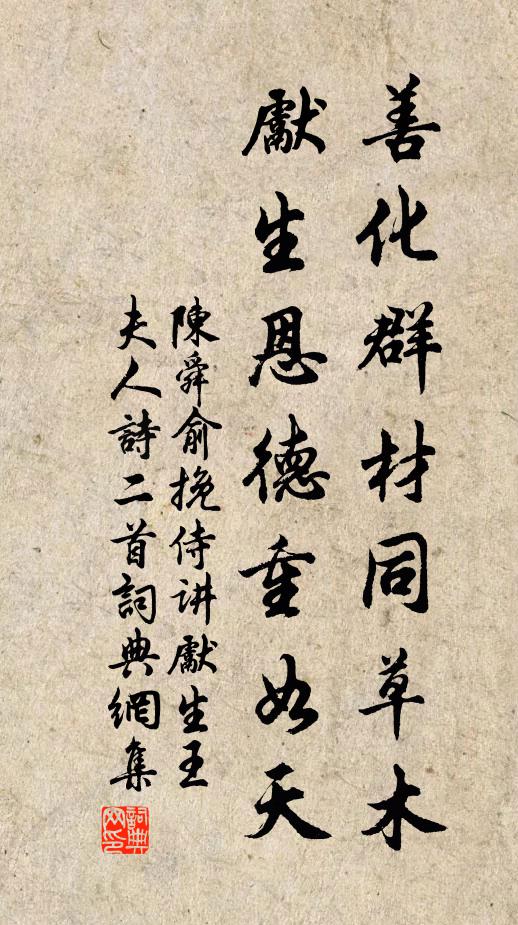 善化群材同草木
獻生恩德重如天
陳舜俞挽侍讲獻生王
夫人詩二首詞典網集
詞典网印